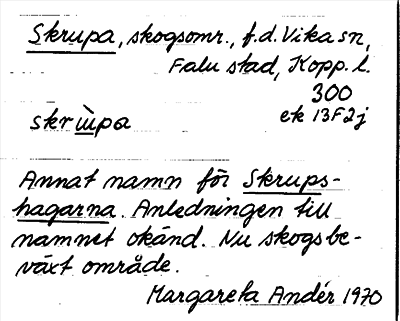 Skrupa, skogsomr., f.d. Vika sn,
Falu stad, Kopp. l.
300
ek 13F2j
skrùpa
Annat namn för Skrups-
hagarna. Anledningen till
namnet okänd. Nu skogsbe-
växt område.
Margareta Andér 1970